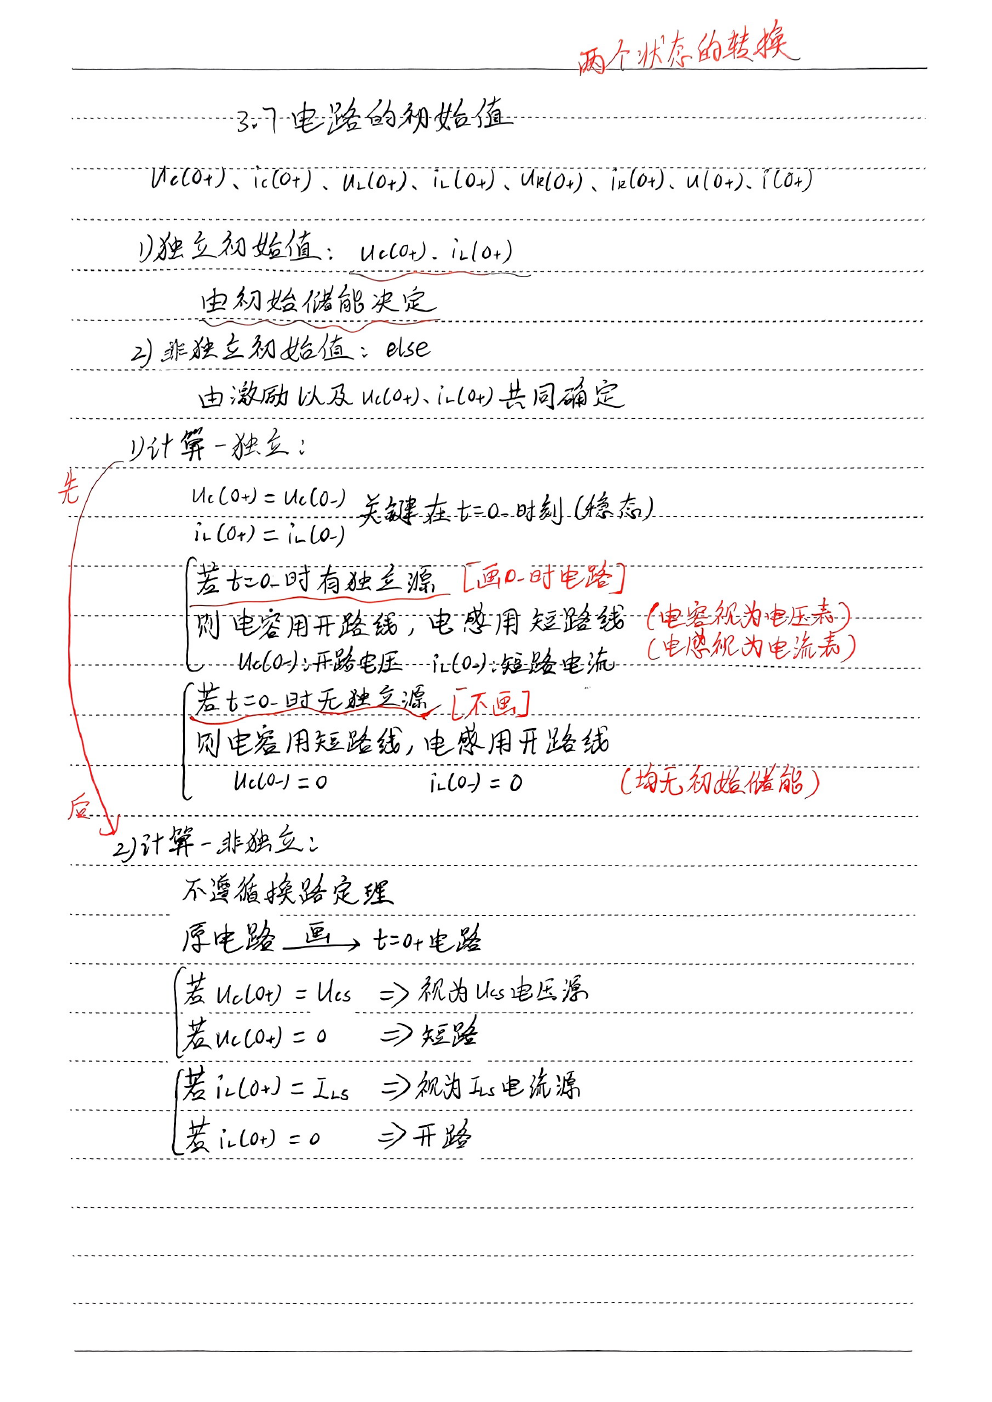 两个状态的转换
3.7 电路的初始值
uc(0+)、ic(0+)、uL(0+)、iL(0+)、uR(0+)、iR(0+)、u(0+)、i(0+)
1)独立初始值：uc(0+)、iL(0+)
由初始储能决定
2)非独立初始值：else
由激励以及uc(0+)、iL(0+)共同确定
1)计算-独立：
先
uc(0+)=uc(0-)
iL(0+)=iL(0-)
关键在t=0-时刻(稳态)
若t=0-时有独立源 [画0-时电路]
则电容用开路线，电感用短路线 (电容视为电压表)
(电感视为电流表)
uc(0-):开路电压 iL(0-):短路电流
若t=0-时无独立源 [不画]
则电容用短路线，电感用开路线
uc(0-)=0 iL(0-)=0 (均无初始储能)
后
2)计算-非独立：
不遵循换路定理
原电路 画→ t=0+电路
若uc(0+)=Ucs => 视为Ucs电压源
若uc(0+)=0 => 短路
若iL(0+)=ILs => 视为ILs电流源
若iL(0+)=0 => 开路